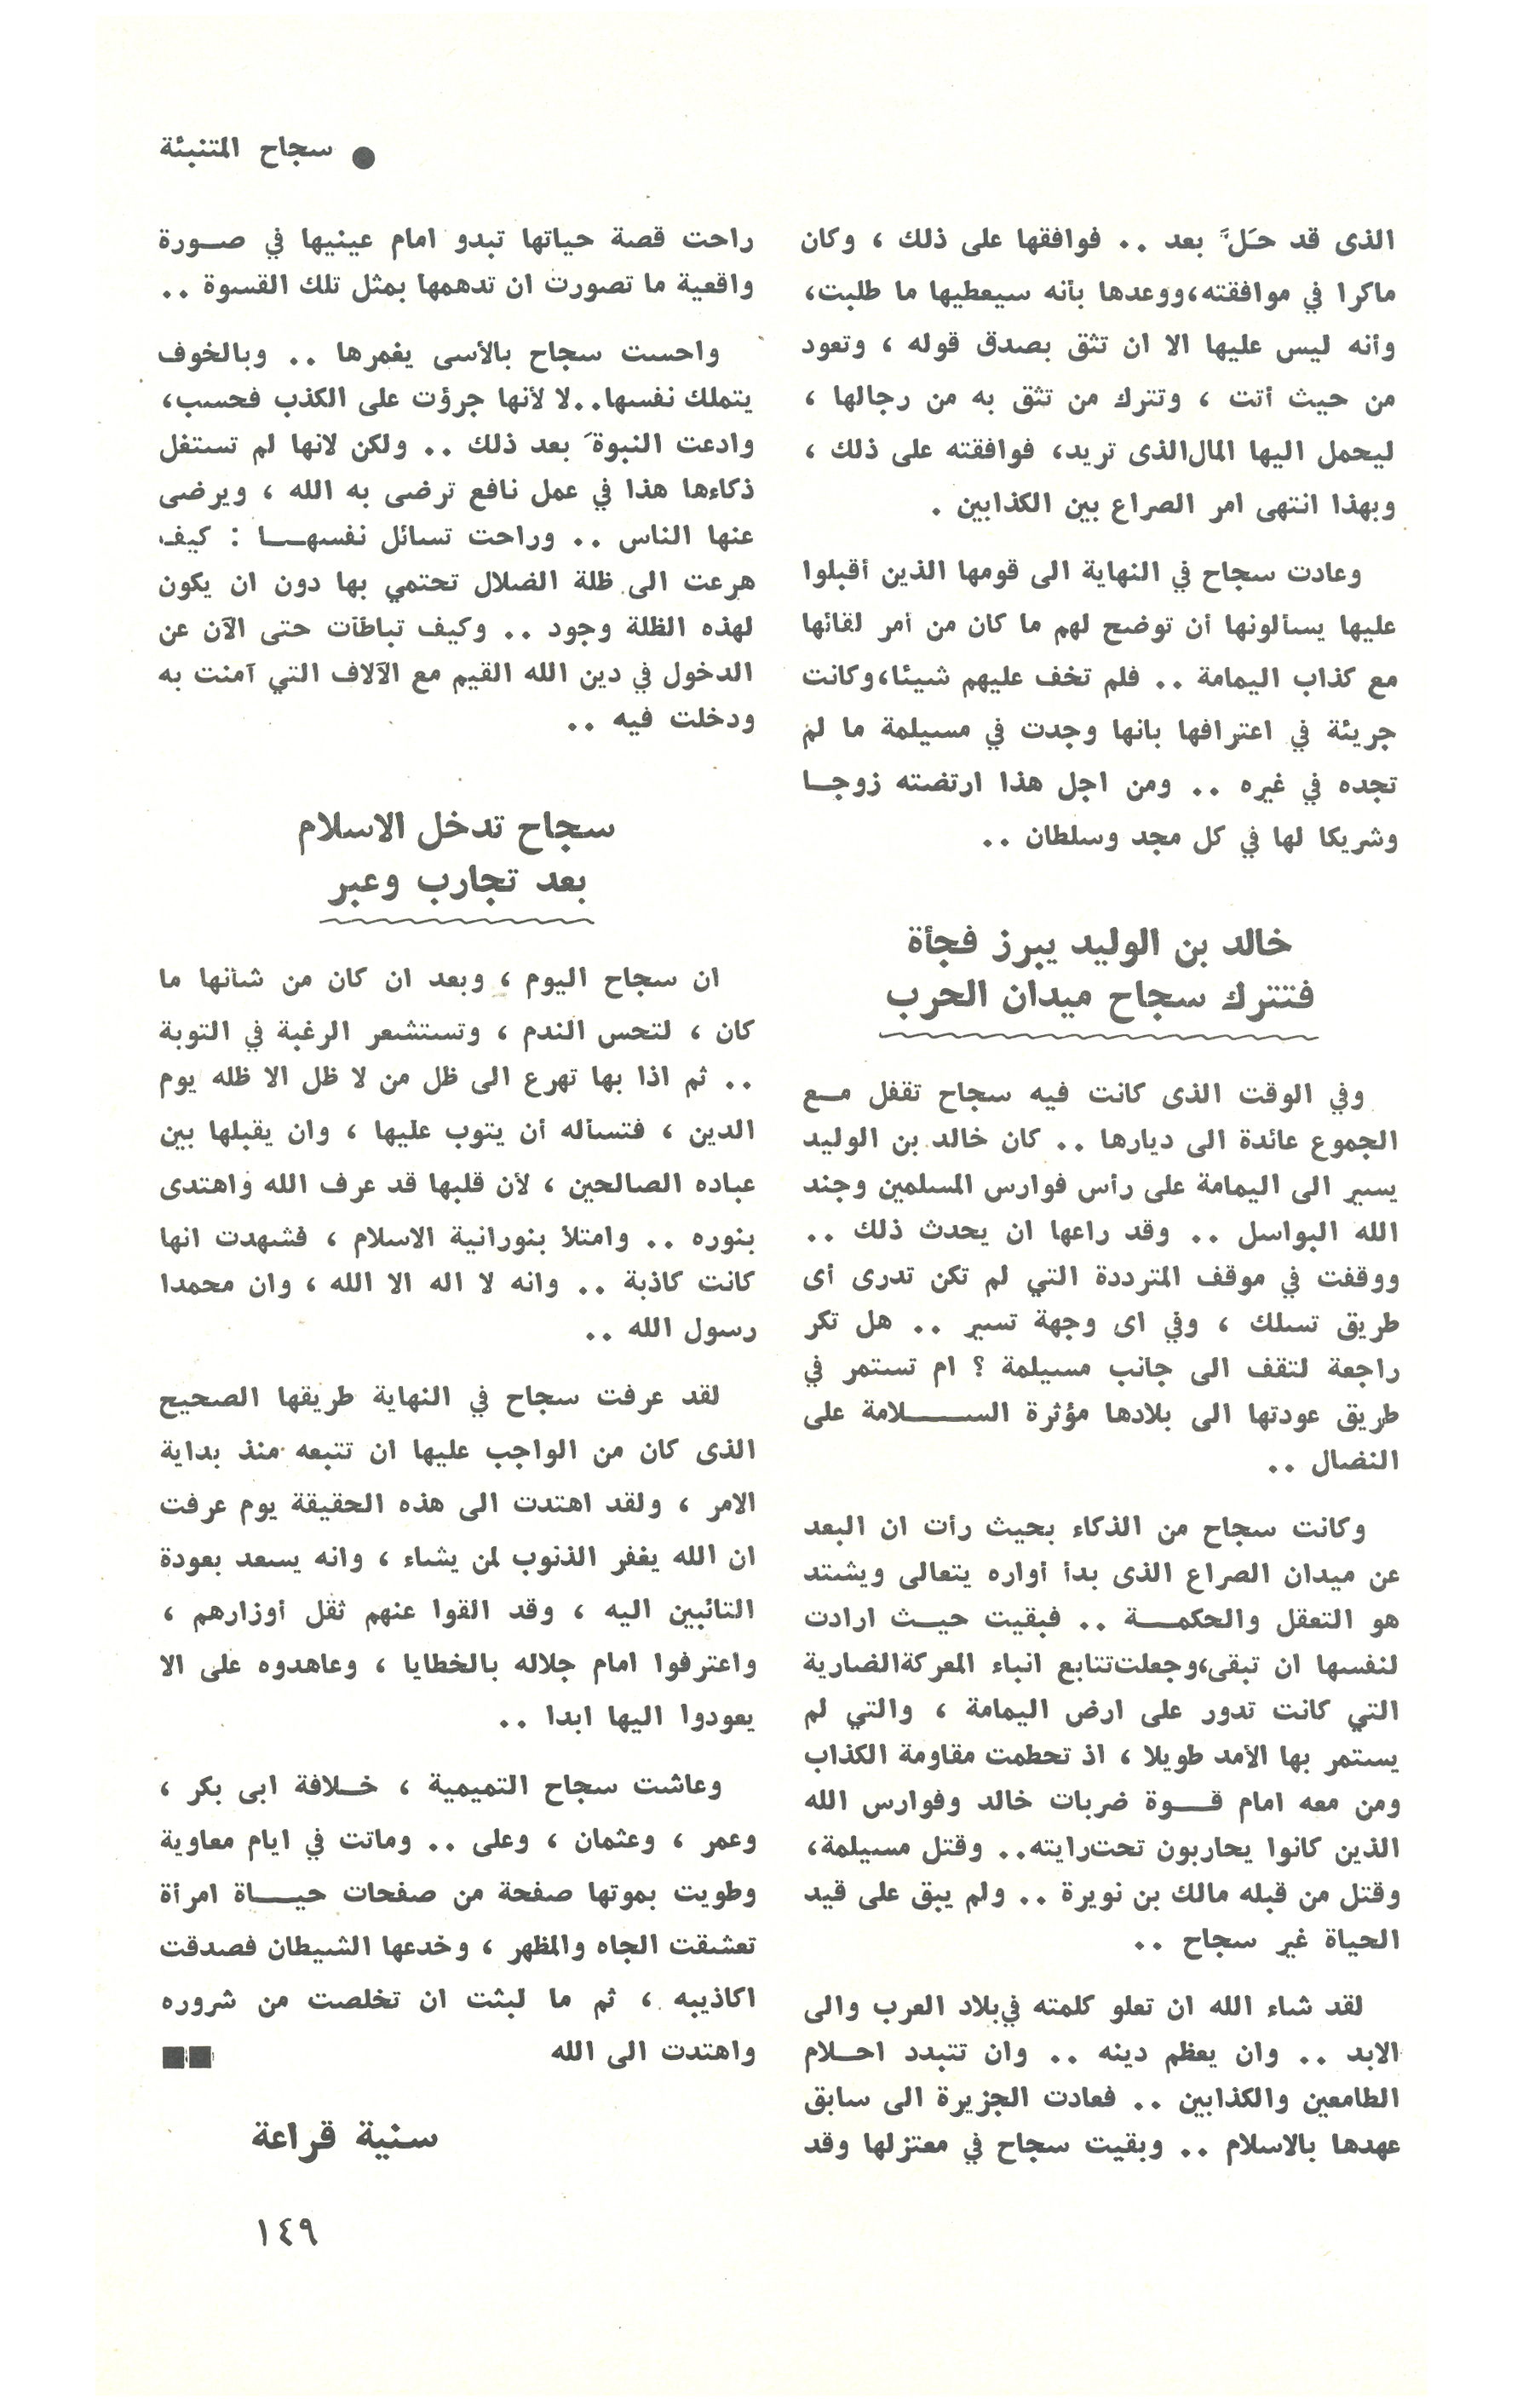 ● سجاح المتنبئة
الذى قد حلَّ بعد .. فوافقها على ذلك ، وكان
ماكرا في موافقته،ووعدها بأنه سيعطيها ما طلبت،
وأنه ليس عليها الا ان تثق بصدق قوله ، وتعود
من حيث أتت ، وتترك من تثق به من رجالها ،
ليحمل اليها المال الذى تريد، فوافقته على ذلك ،
وبهذا انتهى امر الصراع بين الكذابين .
وعادت سجاح في النهاية الى قومها الذين أقبلوا
عليها يسألونها أن توضح لهم ما كان من أمر لقائها
مع كذاب اليمامة .. فلم تخف عليهم شيئا،وكانت
جريئة في اعترافها بانها وجدت في مسيلمة ما لم
تجده في غيره .. ومن اجل هذا ارتضته زوجـا
وشريكا لها في كل مجد وسلطان ..
خالد بن الوليد يبرز فجأة
فتترك سجاح ميدان الحرب
وفي الوقت الذى كانت فيه سجاح تقفل مـع
الجموع عائدة الى ديارها .. كان خالد بن الوليد
يسير الى اليمامة على رأس فوارس المسلمين وجند
الله البواسل .. وقد راعها ان يحدث ذلك ..
ووقفت في موقف المترددة التي لم تكن تدرى أى
طريق تسلك ، وفي اى وجهة تسير .. هل تكر
راجعة لتقف الى جانب مسيلمة ؟ ام تستمر في
طريق عودتها الى بلادها مؤثرة الســـلامة على
النضال ..
وكانت سجاح من الذكاء بحيث رأت ان البعد
عن ميدان الصراع الذى بدأ أواره يتعالى ويشتد
هو التعقل والحكمـــة .. فبقيت حيـث ارادت
لنفسها ان تبقى،وجعلت تتابع انباء المعركة الضارية
التي كانت تدور على ارض اليمامة ، والتي لم
يستمر بها الأمد طويلا ، اذ تحطمت مقاومة الكذاب
ومن معه امام قـــوة ضربات خالد وفوارس الله
الذين كانوا يحاربون تحت رايته.. وقتل مسيلمة،
وقتل من قبله مالك بن نويرة .. ولم يبق على قيد
الحياة غير سجاح ..
لقد شاء الله ان تعلو كلمته في بلاد العرب والى
الابد .. وان يعظم دينه .. وان تتبدد احـلام
الطامعين والكذابين .. فعادت الجزيرة الى سابق
عهدها بالاسلام .. وبقيت سجاح في معتزلها وقد
راحت قصة حياتها تبدو امام عينيها في صـورة
واقعية ما تصورت ان تدهمها بمثل تلك القسوة ..
واحست سجاح بالأسى يغمرها .. وبالخوف
يتملك نفسها..لا لأنها جرؤت على الكذب فحسب،
وادعت النبوةَ بعد ذلك .. ولكن لانها لم تستغل
ذكاءها هذا في عمل نافع ترضى به الله ، ويرضى
عنها الناس .. وراحت تسائل نفسهـــا : كيف
هرعت الى ظلة الضلال تحتمي بها دون ان يكون
لهذه الظلة وجود .. وكيف تباطأت حتى الآن عن
الدخول في دين الله القيم مع الآلاف التي آمنت به
ودخلت فيه ..
سجاح تدخل الاسلام
بعد تجارب وعبر
ان سجاح اليوم ، وبعد ان كان من شأنها ما
كان ، لتحس الندم ، وتستشعر الرغبة في التوبة
.. ثم اذا بها تهرع الى ظل من لا ظل الا ظله يوم
الدين ، فتسأله أن يتوب عليها ، وان يقبلها بين
عباده الصالحين ، لأن قلبها قد عرف الله واهتدى
بنوره .. وامتلأ بنورانية الاسلام ، فشهدت انها
كانت كاذبة .. وانه لا اله الا الله ، وان محمدا
رسول الله ..
لقد عرفت سجاح في النهاية طريقها الصحيح
الذى كان من الواجب عليها ان تتبعه منذ بداية
الامر ، ولقد اهتدت الى هذه الحقيقة يوم عرفت
ان الله يغفر الذنوب لمن يشاء ، وانه يسعد بعودة
التائبين اليه ، وقد القوا عنهم ثقل أوزارهم ،
واعترفوا امام جلاله بالخطايا ، وعاهدوه على الا
يعودوا اليها ابدا ..
وعاشت سجاح التميمية ، خـلافة ابى بكر ،
وعمر ، وعثمان ، وعلى .. وماتت في ايام معاوية
وطويت بموتها صفحة من صفحات حيـــاة امرأة
تعشقت الجاه والمظهر ، وخدعها الشيطان فصدقت
اكاذيبه ، ثم ما لبثت ان تخلصت من شروره
واهتدت الى الله ■■
سنية قراعة
١٤٩